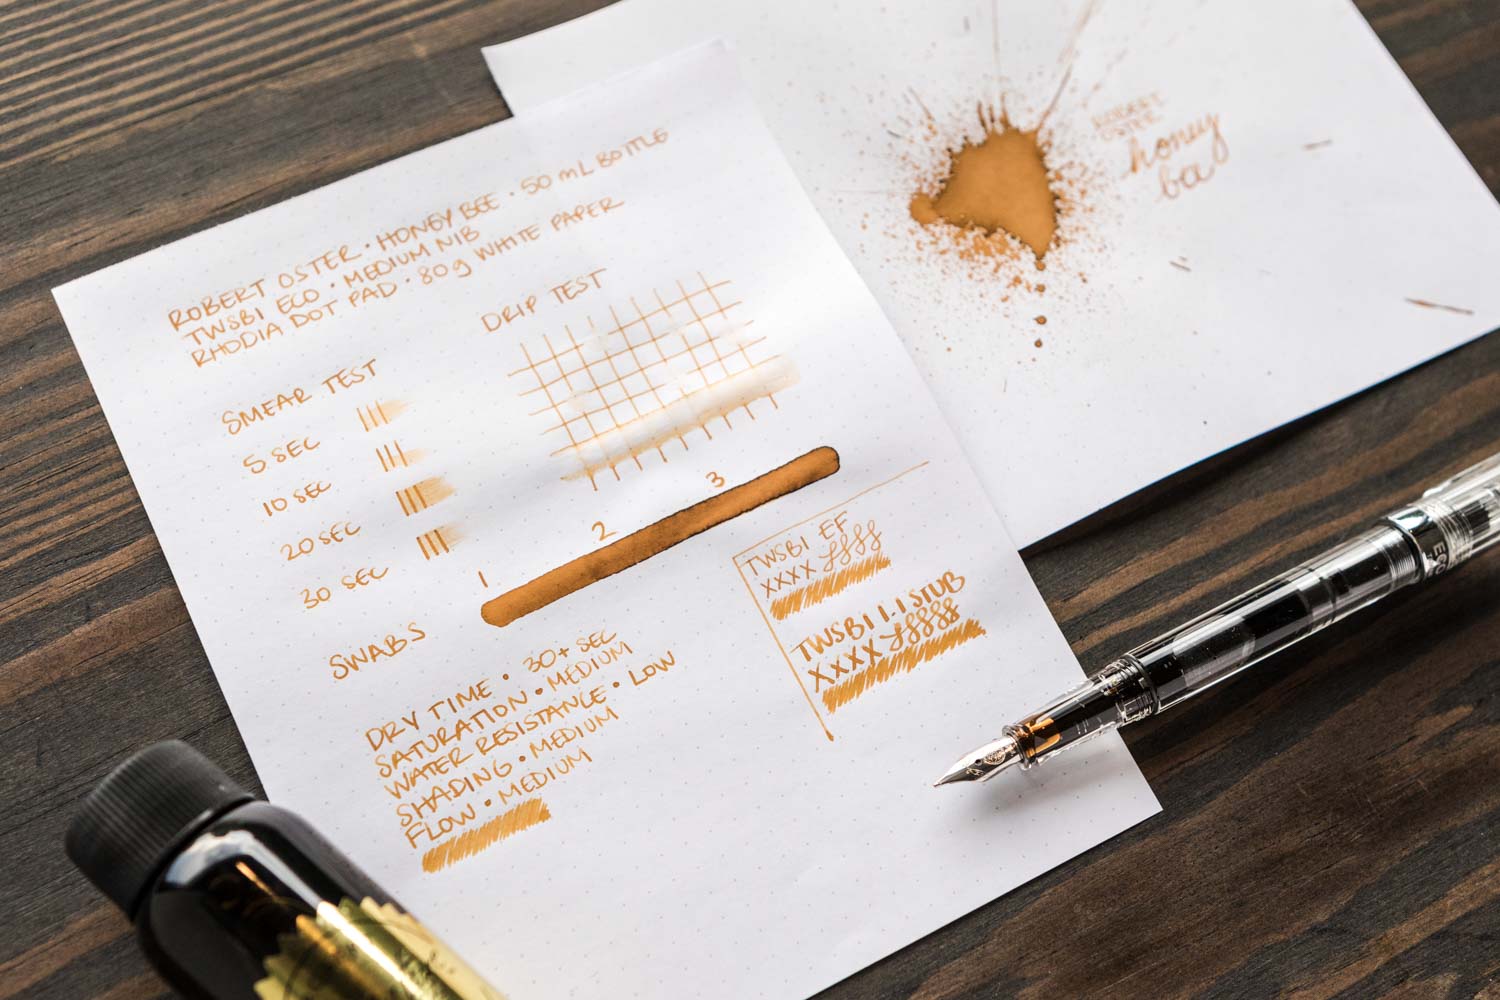 ROBERT OSTER · HONEY BEE · 50 mL BOTTLE
TWSBI ECO · MEDIUM NIB
RHODIA DOT PAD · 80g WHITE PAPER
SMEAR TEST
5 SEC
10 SEC
20 SEC
30 SEC
DRIP TEST
SWABS
1
2
3
DRY TIME · 30+ SEC
SATURATION · MEDIUM
WATER RESISTANCE · LOW
SHADING · MEDIUM
FLOW · MEDIUM
TWSBI EF
XXXX
TWSBI 1.1 STUB
XXXX
ROBERT
OSTER
honey
bee
ECO